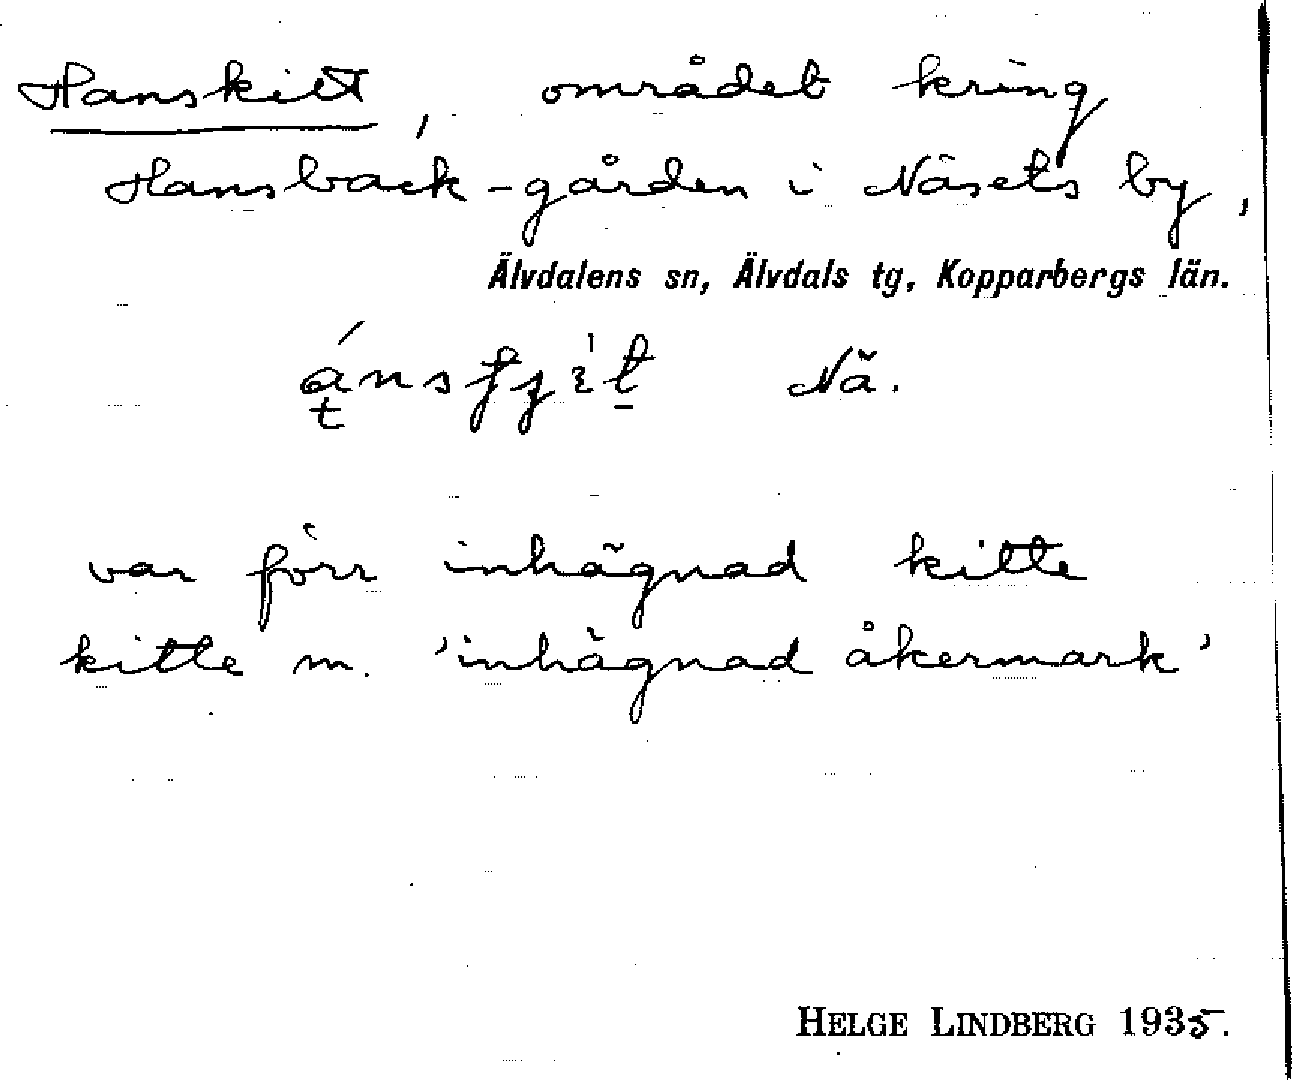 Hanskitt, området kring
Hansback-gården i Näsets by,
Älvdalens sn, Älvdals tg, Kopparbergs län.
Nä.
var förr inhägnad kitte
kitte m. 'inhägnad åkermark'
HELGE LINDBERG 1935.